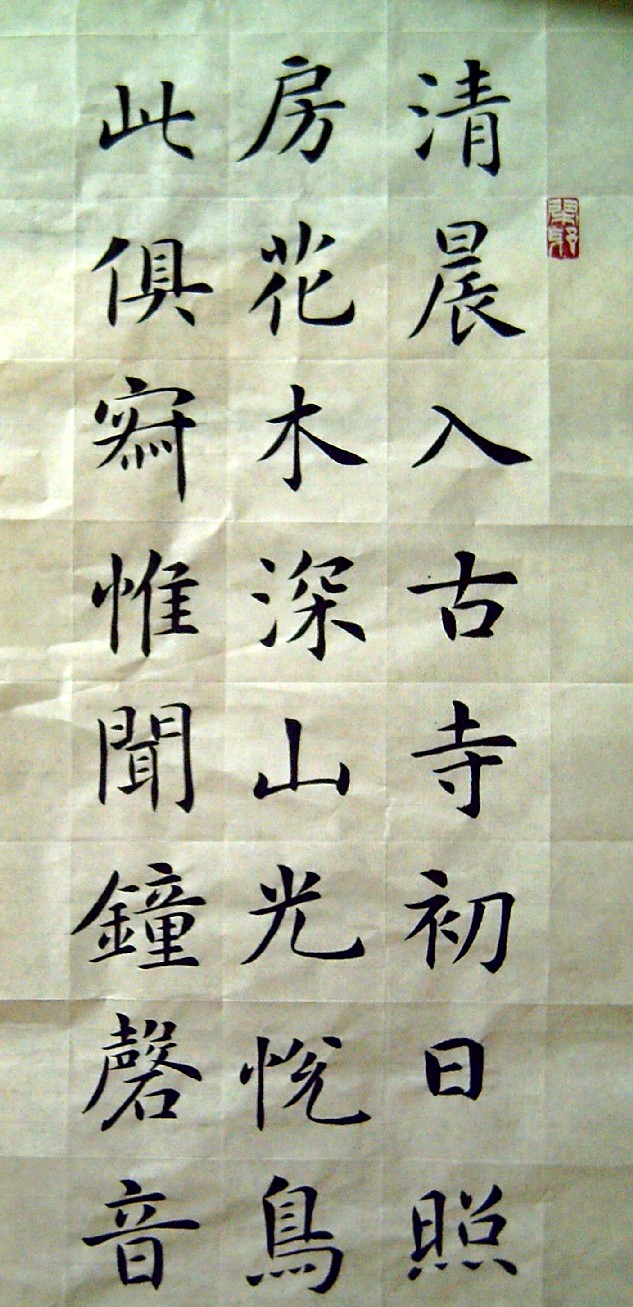 清晨入古寺初日照
房花木深山光悅鳥
此俱寂惟聞鐘磬音